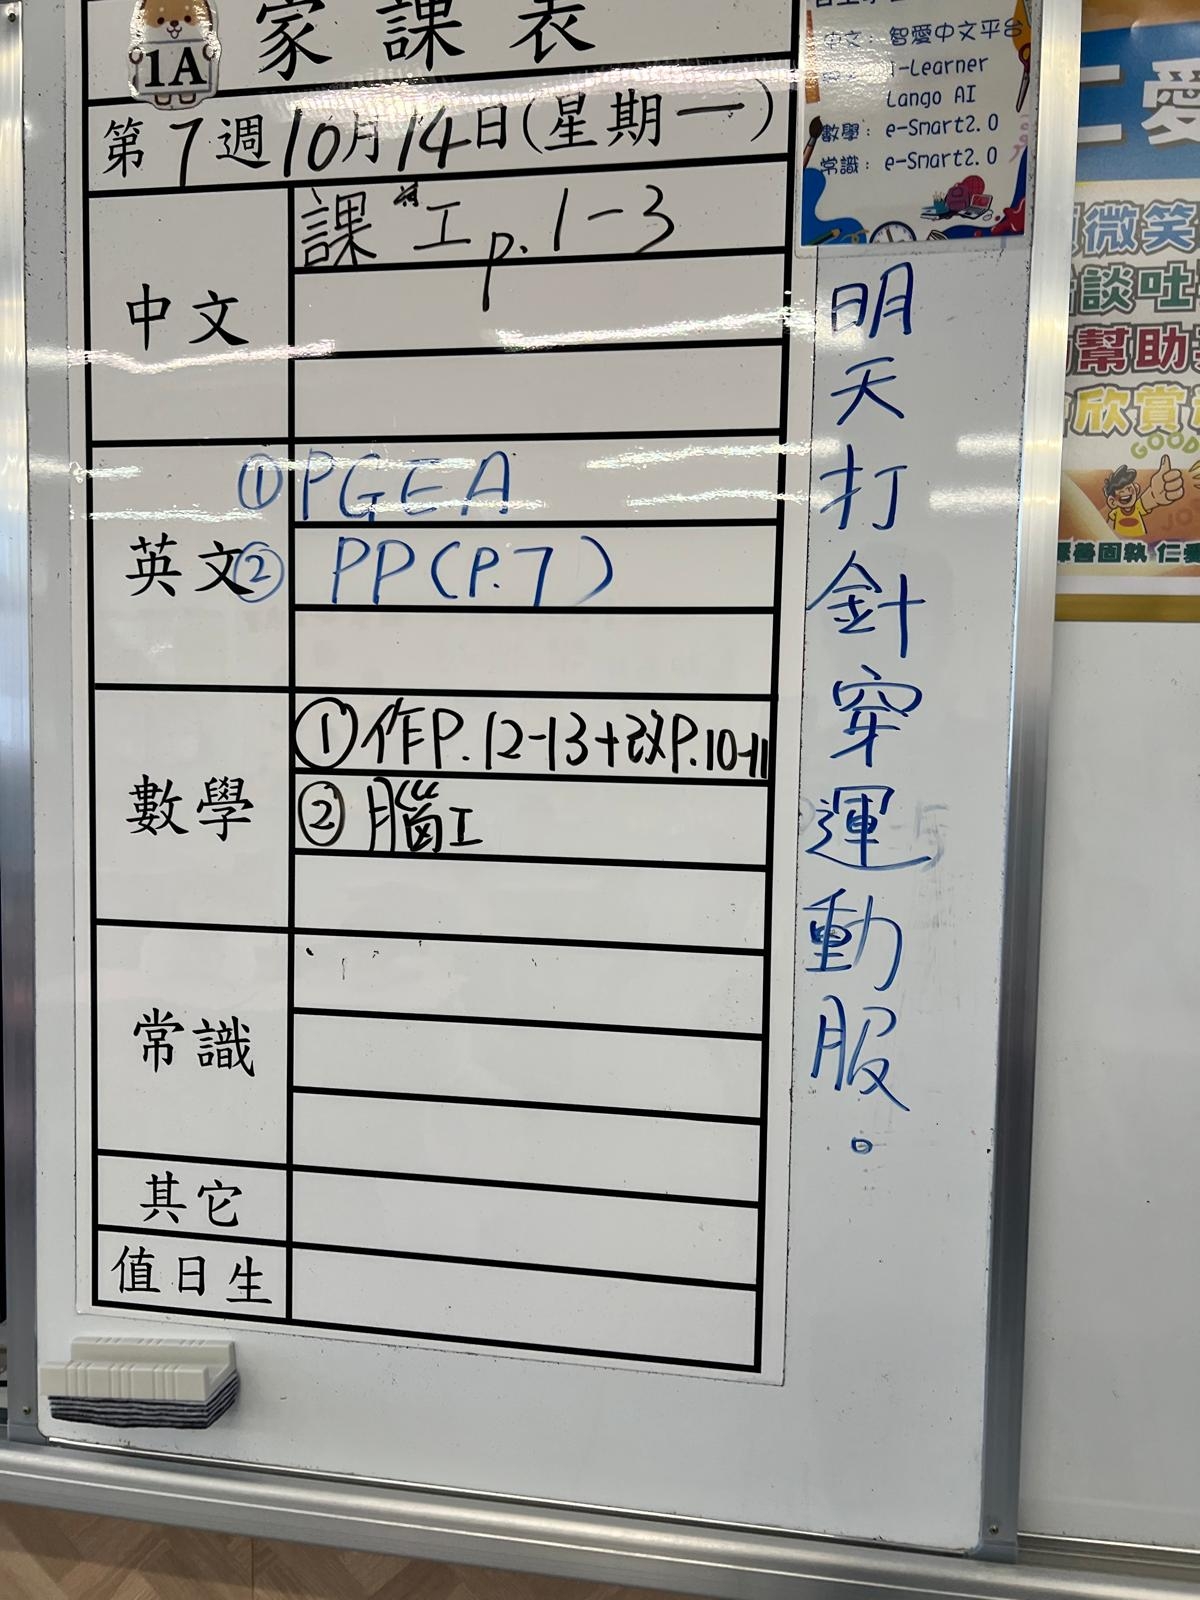 家課表
1A
第7週10月14日(星期一)
中文
課 工 p. 1-3
英文
①PGEA
②PP(P.7)
數學
①作P.12-13+改P.10-11
②腦工
常識
其它
值日生
中文：智愛中文平台
i-Learner
Lango AI
數學：e-Smart2.0
常識：e-Smart2.0
明天打針穿運動服。
仁愛
微笑
談吐
幫助
欣賞
GOOD
擇善固執 仁愛